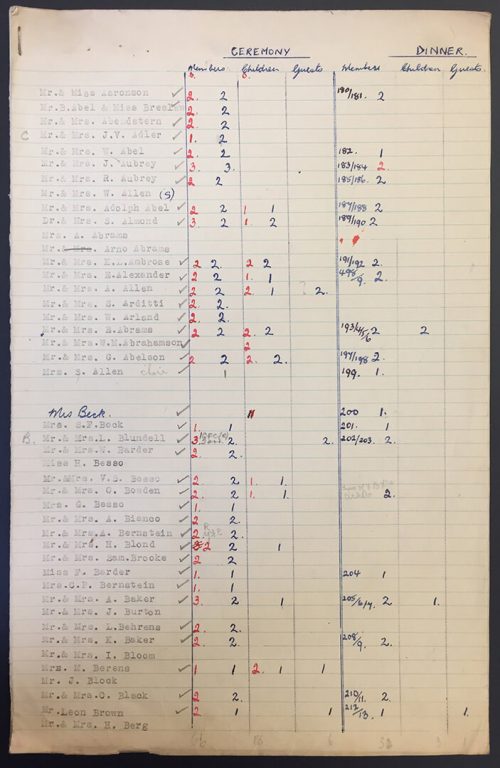 CEREMONY DINNER.
Members. Children Guests Members Children Guests.
Mr.& Miss Aaronson 2. 2 180/181. 2
Mr.B.Abel & Miss Breslaw 2. 2
Mr.& Mrs. Abendstern 2. 2
C Mr.& Mrs. J.V. Adler 1. 2
Mr.& Mrs. W. Abel 2. 2 182. 1
Mr.& Mrs. J. Aubrey 3. 3. 183/184 2.
Mr.& Mrs. R. Aubrey 2 2 185/186. 2
Mr.& Mrs. W. Allen (S)
Mr.& Mrs. Adolph Abel 2 2 1 1 187/188 2.
Dr.& Mrs. S. Almond 3. 2 1. 2 189/190 2
Mrs. A. Abrams
Mr.& Mrs. Arno Abrams
Mr.& Mrs. E.L.Ambrose 2 2. 2 2 191/192 2.
Mr.& Mrs. E.Alexander 2 2 1. 1 498/9. 2.
Mr.& Mrs. A. Allen 2 2 2. 1 2.
Mr.& Mrs. S. Arditti 2. 2.
Mr.& Mrs. W. Arland 2. 2.
Mr.& Mrs. E.Abrams 2 2 2. 2 193/4/5/6 2 2
Mr.& Mrs.W.M.Abrahamson 2
Mr.& Mrs. G. Abelson 2 2 2. 2. 197/198 2.
Mrs. S. Allen choir 1 199. 1.
Mrs Beck. 200 1.
Mrs. S.F.Bock 1. 1 201. 1
B. Mr.& Mrs.L. Blundell 3 2. 2. 202/203. 2.
Mr.& Mrs.W. Barder 2. 2.
Miss H. Besso
Mr.&Mrs. V.S. Besso 2 2 1. 1
Mr.& Mrs. G. Bowden 2. 2 1. 1. 2.
Mrs. G. Besso 1. 1
Mr.& Mrs. A. Bianco 2. 2
Mr.& Mrs.A. Bernstein 2. 2
Mr.& Mrs. H. Blond 2 2 1
Mr.& Mrs. Sam.Brooke 2 2
Miss F. Barder 1. 1 204 1
Mrs.G.P. Bernstein 1. 1
Mr.& Mrs. A. Baker 3. 2 1 205/6/7. 2 1.
Mr.& Mrs. J. Burton
Mr.& Mrs. L.Behrens 2. 2.
Mr.& Mrs. K. Baker 2. 2. 208/9. 2.
Mr.& Mrs. I. Bloom
Mrs. M. Berens 1 1 2. 1 1
Mr. J. Block
Mr.& Mrs.C. Black 2 2. 210/11. 2
Mr.Leon Brown 2 1 1 212/13. 1 1.
Mr.& Mrs. H. Berg